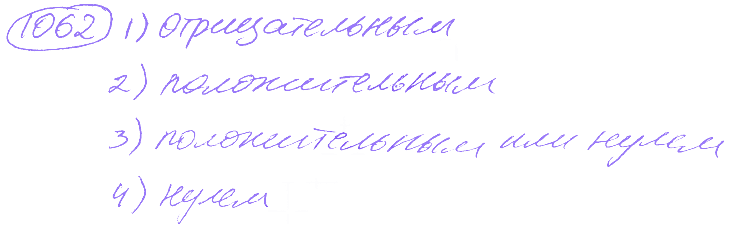 1062 1) отрицательным
2) положительным
3) положительным или нулем
4) нулем